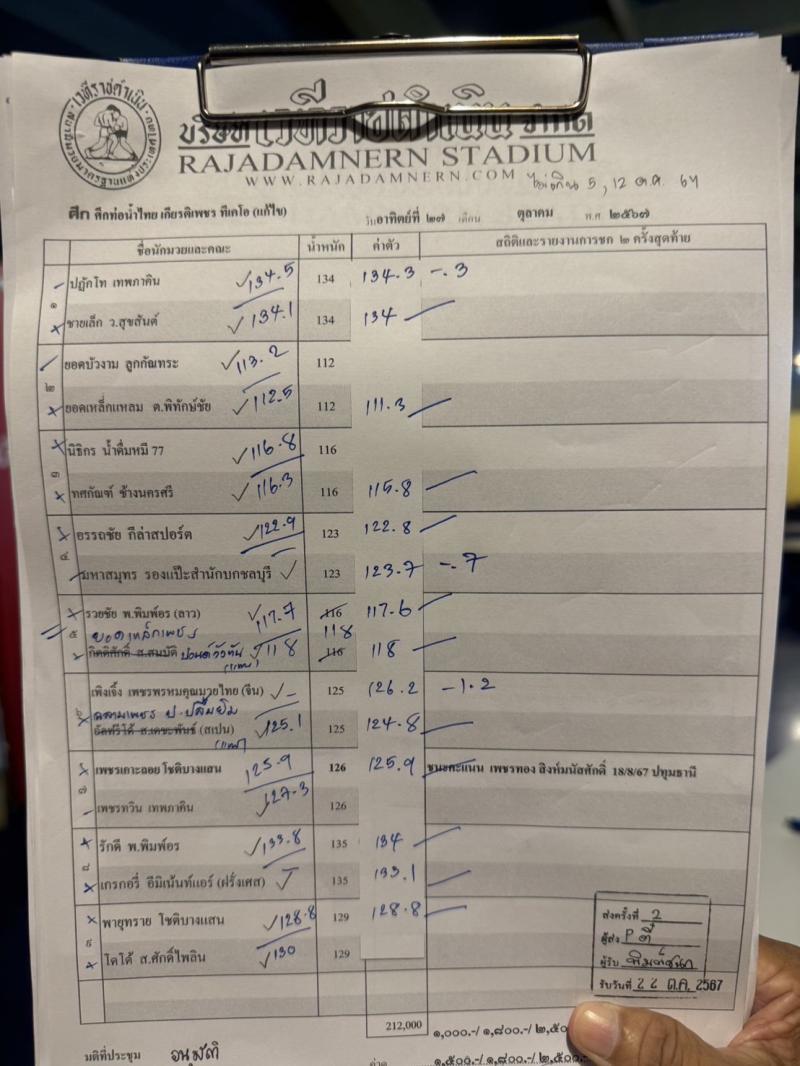 เวทีราชดำเนิน
บริษัท เวทีราชดำเนิน จำกัด
RAJADAMNERN STADIUM
WWW.RAJADAMNERN.COM
ไม่เกิน 5, 12 ต.ค. 67
ศึก ศึกท่อน้ำไทย เกียรติเพชร ทีเคโอ (แก้ไข) วันอาทิตย์ที่ ๒๗ เดือน ตุลาคม พ.ศ ๒๕๖๗
ชื่อนักมวยและคณะ น้ำหนัก ค่าตัว สถิติและรายงานการชก ๒ ครั้งสุดท้าย
๑
ปฏักโท เทพภาคิน 134.5 134 134.3 -.3
ชายเล็ก ว.สุขสันต์ 134.1 134 134
๒
ยอดบัวงาม ลูกกัณทระ 113.2 112
ยอดเหล็กแหลม ต.พิทักษ์ชัย 112.5 112 111.3
๓
นิธิกร น้ำดื่มหมี 77 116.8 116
ทศกัณฑ์ ช้างนครศรี 116.3 116 115.8
๔
อรรถชัย กีล่าสปอร์ต 122.9 123 122.8
มหาสมุทร รองแป๊ะสำนักบกชลบุรี 123 123.7 -.7
๕
รวยชัย พ.พิมพ์อร (ลาว) 117.7 116 117.6
ยอดเหล็กเพชร 118
กิตติศักดิ์ ส.สมบัติ 118 116 118
(แทน)
๖
เพิงเจิ้ง เพชรพรหมคุณมวยไทย (จีน) - 125 126.2 -1.2
ฉลามเพชร ป.ปลื้มยิม
อัลฟรีโด้ ส.เดชะพันธ์ (สเปน) 125.1 125 124.8
(แทน)
๗
เพชรเกาะลอย โชติบางแสน 125.9 126 125.9 ชนะคะแนน เพชรทอง สิงห์มนัสศักดิ์ 18/8/67 ปทุมธานี
เพชรทวิน เทพภาคิน 127.3 126
๘
รักดี พ.พิมพ์อร 133.8 135 134
เกรกอรี่ อีมิเน้นท์แอร์ (ฝรั่งเศส) 135 133.1
๙
พายุทราย โชติบางแสน 128.8 129 128.8
โตโต้ ส.ศักดิ์ไพลิน 130 129
ส่งครั้งที่ 2
ผู้ส่ง P ตี้
ผู้รับ พิมพ์ชนก
รับวันที่ 22 ต.ค. 2567
212,000
๑,๐๐๐.-/ ๑,๘๐๐/ ๒,๕๐
มติที่ประชุม อนุมัติ
๑,๕๐๐.-/ ๑,๘๐๐/ ๒,๕๐๐